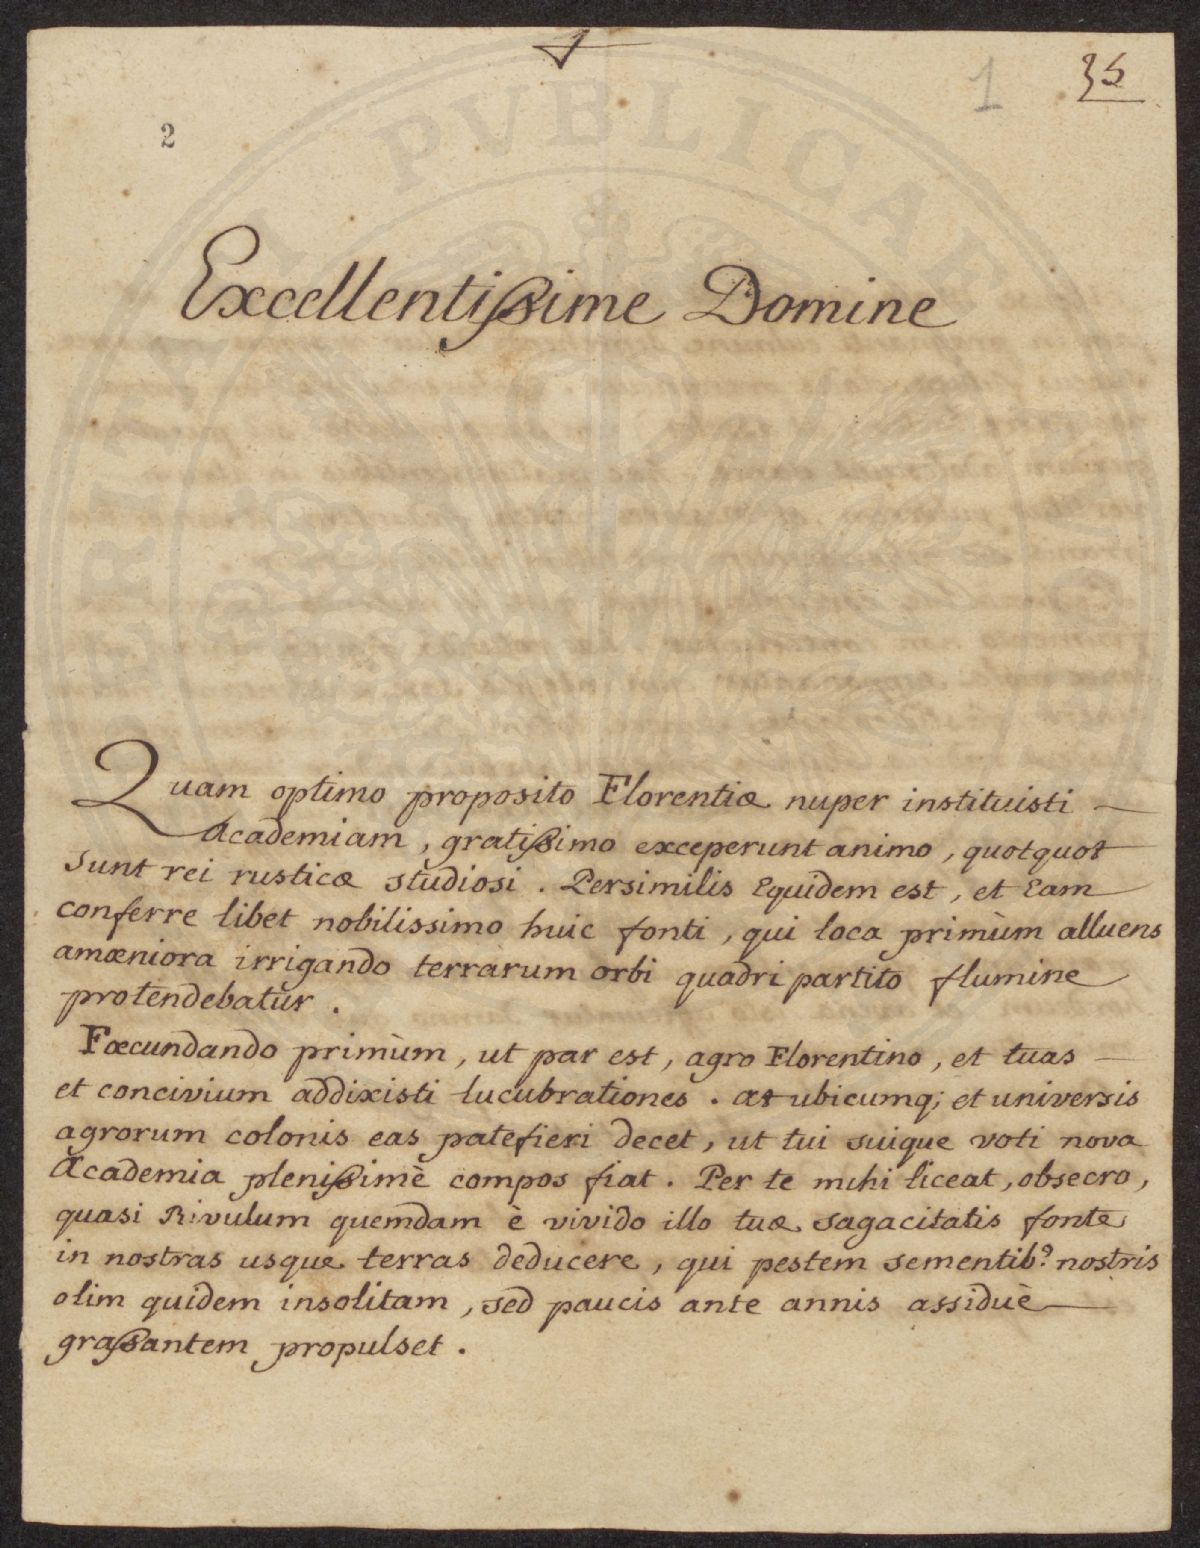 1 35
2
Excellentissime Domine
Quam optimo proposito Florentiæ nuper instituisti
Academiam, gratissimo exceperunt animo, quotquot
sunt rei rusticæ studiosi. Persimilis Equidem est, et Eam
conferre libet nobilissimo huic fonti, qui loca primùm alluens
amæniora irrigando terrarum orbi quadripartito flumine
protendebatur.
Fœcundando primùm, ut par est, agro Florentino, et tuas
et concivium addixisti lucubrationes. at ubicumq; et universis
agrorum colonis eas patefieri decet, ut tui suique voti nova
Academia plenissimè compos fiat. Per te mihi liceat, obsecro,
quasi Rivulum quemdam è vivido illo tuæ sagacitatis fonte
in nostras usque terras deducere, qui pestem sementib? nostris
olim quidem insolitam, sed paucis ante annis assiduè
grassantem propulset.